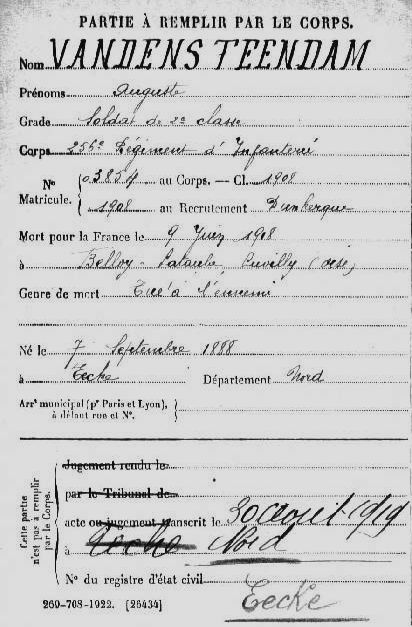 PARTIE À REMPLIR PAR LE CORPS.
Nom VANDENSTEENDAM
Prénoms Auguste
Grade Soldat de 2e classe
Corps 256e Régiment d'Infanterie
N° Matricule. { 03854 au Corps. — Cl. 1908
1908 au Recrutement Dunkerque
Mort pour la France le 9 Juin 1918
à Belloy Cuvilly (Oise)
Genre de mort Tué à l'ennemi
Né le 7 Septembre 1888
à Eecke Département Nord
Arr^t municipal (p^r Paris et Lyon), à défaut rue et N°. }
Cette partie n'est pas à remplir par le Corps.
Jugement rendu le
par le Tribunal de
acte ou jugement transcrit le 30 août 1919
à Eecke Nord
N° du registre d'état civil
Eecke
260-708-1922. [26434]